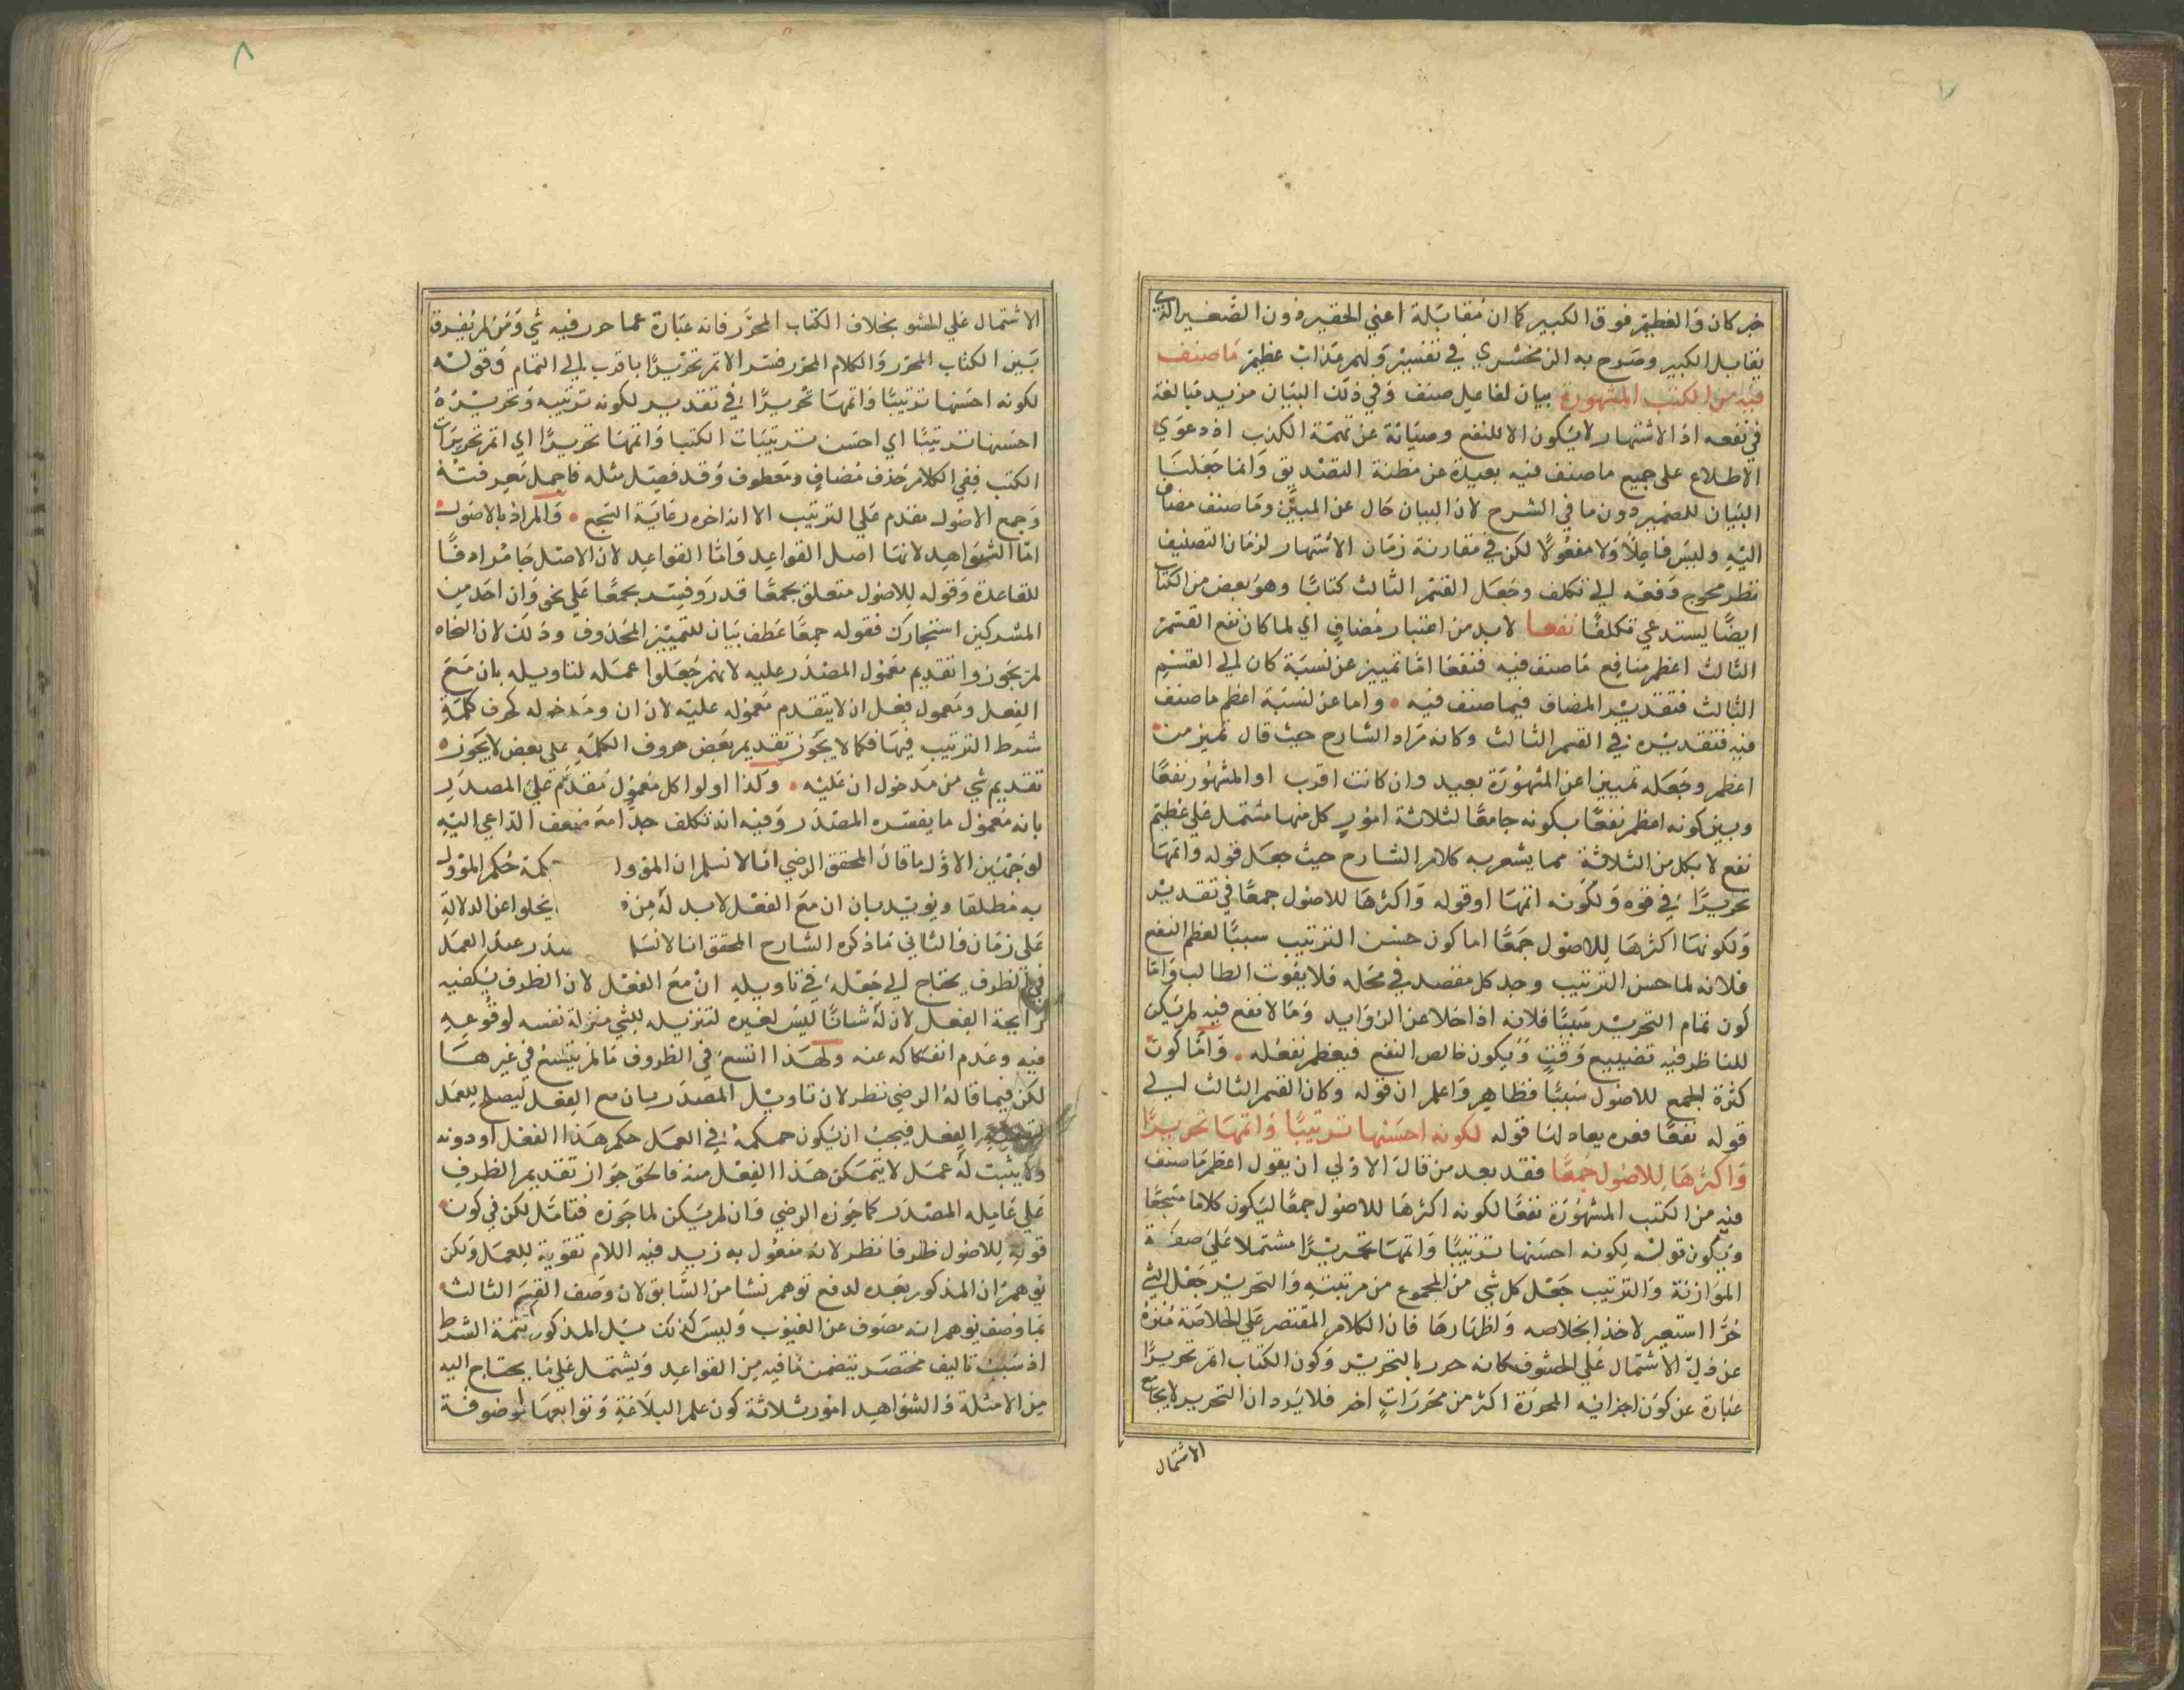 ٧
خبر كان والعظيم فوق الكبير كما ان مقابله اعني الحقير دون الصغير الذي
يقابل الكبير وصرح به الزمخشري في تفسير ولهم عذاب عظيم ما صنف
فيه من الكتب المشهورة بيان لفاعل صنف وفي ذلك البيان مزيد مبالغة
في نفعه اذ الاشتهار لا يكون الا للنفع وصيانة عن تهمة الكذب اذ دعوي
الاطلاع على جميع ما صنف فيه بعيدة عن مظنة التصديق وانما جعلنا
البيان للضمير دون ما في الشرح لان البيان حال عن المبين وما صنف مضاف
اليه وليس فاعلا ولا مفعولا لكن في مقارنة زمان الاشتهار لزمان التصنيف
نظر محوج دفعه الي تكلف وجعل القسم الثالث كتابا وهو بعض من الكتاب
ايضا يستدعي تكلفا نفعا لا بد من اعتبار مضاف اي لما كان نفع القسم
الثالث اعظم منافع ما صنف فيه فنفعا اما تمييز عن نسبة كان الي القسم
الثالث فتقدير المضاف فيما صنف فيه واما عن نسبة اعظم ما صنف
فيه فتقديره في القسم الثالث وكانه مراد الشارح حيث قال تميز من
اعظم وجعله تمييزا عن المشهورة بعيد وان كانت اقرب او المشهور نفعا
وبين كونه اعظم نفعا بكونه جامعا لثلاثة امور كل منها مشتمل علي عظيم
نفع لا بكل من الثلاثة مما يشعر به كلام الشارح حيث جعل قوله واتمها
تحريرا في قوه ولكونه اتمها او قوله واكثرها للاصول جمعا في تقدير
ولكونها اكثرها للاصول جمعا اما كون حسن الترتيب سببا لعظم النفع
فلانه لما حسن الترتيب وجد كل مقصد في محله فلا يفوت الطالب واما
كون تمام التحرير سببا فلانه اذا خلا عن الزوايد وما لا نفع فيه لم يكن
للناظر فيه تضييع وقت ويكون خالص النفع فيعظم نفعه له واما كون
كثرة الجمع للاصول سببا فظاهر واعلم ان قوله وكان القسم الثالث الي
قوله نفعا فقره يعادلها قوله لكونه احسنها ترتيبا واتمها تحريرا
واكثرها للاصول جمعا فقد بعد من قال الاولي ان يقول اعظم ما صنف
فيه من الكتب المشهورة نفعا لكونه اكثرها للاصول جمعا ليكون كلاما مسجعا
ويكون قوله لكونه احسنها ترتيبا واتمها تحريرا مشتملا علي صفة
الموازنة والترتيب جعل كل شي من المجموع من مرتبته والتحرير جعل الشي
حرا استعير لاخذ الخلاصه واظهارها فان الكلام المقتصر علي الخلاصة منزه
عن ذل الاشتمال علي الحشو فكانه حرر بالتحرير وكون الكتاب اتم تحريرا
عبارة عن كون اجزائه المحررة اكثر من محررات اخر فلا يرد ان التحرير لا يجامع
الاشتمال
٨
الاشتمال علي الحشو بخلاف الكتاب المحرر فانه عبارة عما حرر فيه شي ومن لم يفرق
بين الكتاب المحرر والكلام المحرر فسر الاتم تحريرا باقرب الي التمام وقوله
لكونه احسنها ترتيبا واتمها تحريرا في تقدير لكونه ترتيبه وتحريره
احسنها ترتيبا اي احسن ترتيبات الكتب واتمها تحريرا اي اتم تحريرات
الكتب ففي الكلام حذف مضاف ومعطوف وقد فصل مثله فاجمل معرفته
وجمع الاصول مقدم علي الترتيب الا انه اخره رعاية السجع والمراد بالاصول
اما الشواهد لانها اصل القواعد واما القواعد لان الاصل جا مرادفا
للقاعدة وقوله للاصول متعلق بجمعا قدر وفسر بجمعا علي نحو وان احد من
المشركين استجارك فقوله جمعا عطف بيان للتمييز المحذوف وذلك لان النحاه
لم يجوزوا تقديم معمول المصدر عليه لانهم جعلوا عمله لتاويله بان مع
الفعل ومعمول فعل ان لا يتقدم معموله عليه لان ان ومدخوله كحرف كلمة
شرط الترتيب فيها فكما لا يجوز تقديم بعض حروف الكلمه علي بعض لا يجوز
تقديم شي من مدخول ان عليه وكذا اولوا كل معمول مقدم علي المصدر
بانه معمول ما يفسره المصدر وفيه انه تكلف جدا مع ضعف الداعي اليه
لوجهين الاول ما قال المحقق الرضي انا لا نسلم ان المؤول بكلمة حكم المؤول
به مطلقا ويؤيد بان ان مع الفعل لا بد له من يخلوا عن الدلالة
علي زمان والثاني ما ذكره الشارح المحقق انا لا نسلم عند العمل
في الظرف يحتاج الي جعله في تاويله ان مع الفعل لان الظرف يكفيه
رايحة الفعل لان له شانا ليس لغيره لتنزيله للشي منزلة نفسه لوقوعه
فيه وعدم انفكاكه عنه ولهذا اتسع في الظروف ما لم يتسع في غيرها
لكن فيما قاله الرضي نظر لان تاويل المصدر بان مع الفعل ليصلح للعمل
الفعل فيجب ان يكون حكمه في العمل حكم هذا الفعل او دونه
ولا يثبت له عمل لا يتمكن هذا الفعل منه فالحق جواز تقديم الظرف
علي عامله المصدر كما جوزه الرضي وان لم يكن لما جوزه فتامل لكن في كون
قوله للاصول ظرفا نظر لانه مفعول به زيد فيه اللام تقوية للعمل ولكن
توهم ان المذكور بعده لدفع توهم نشا من السابق لان وصف القسم الثالث
بما وصف يوهم انه مصون عن العيوب وليس كذلك بل المذكور تتمة الشرط
اذ سبب تاليف مختصر يتضمن ما فيه من القواعد ويشتمل علي ما يحتاج اليه
من الامثلة والشواهد امور ثلاثة كون علم البلاغة وتوابعها موصوفة